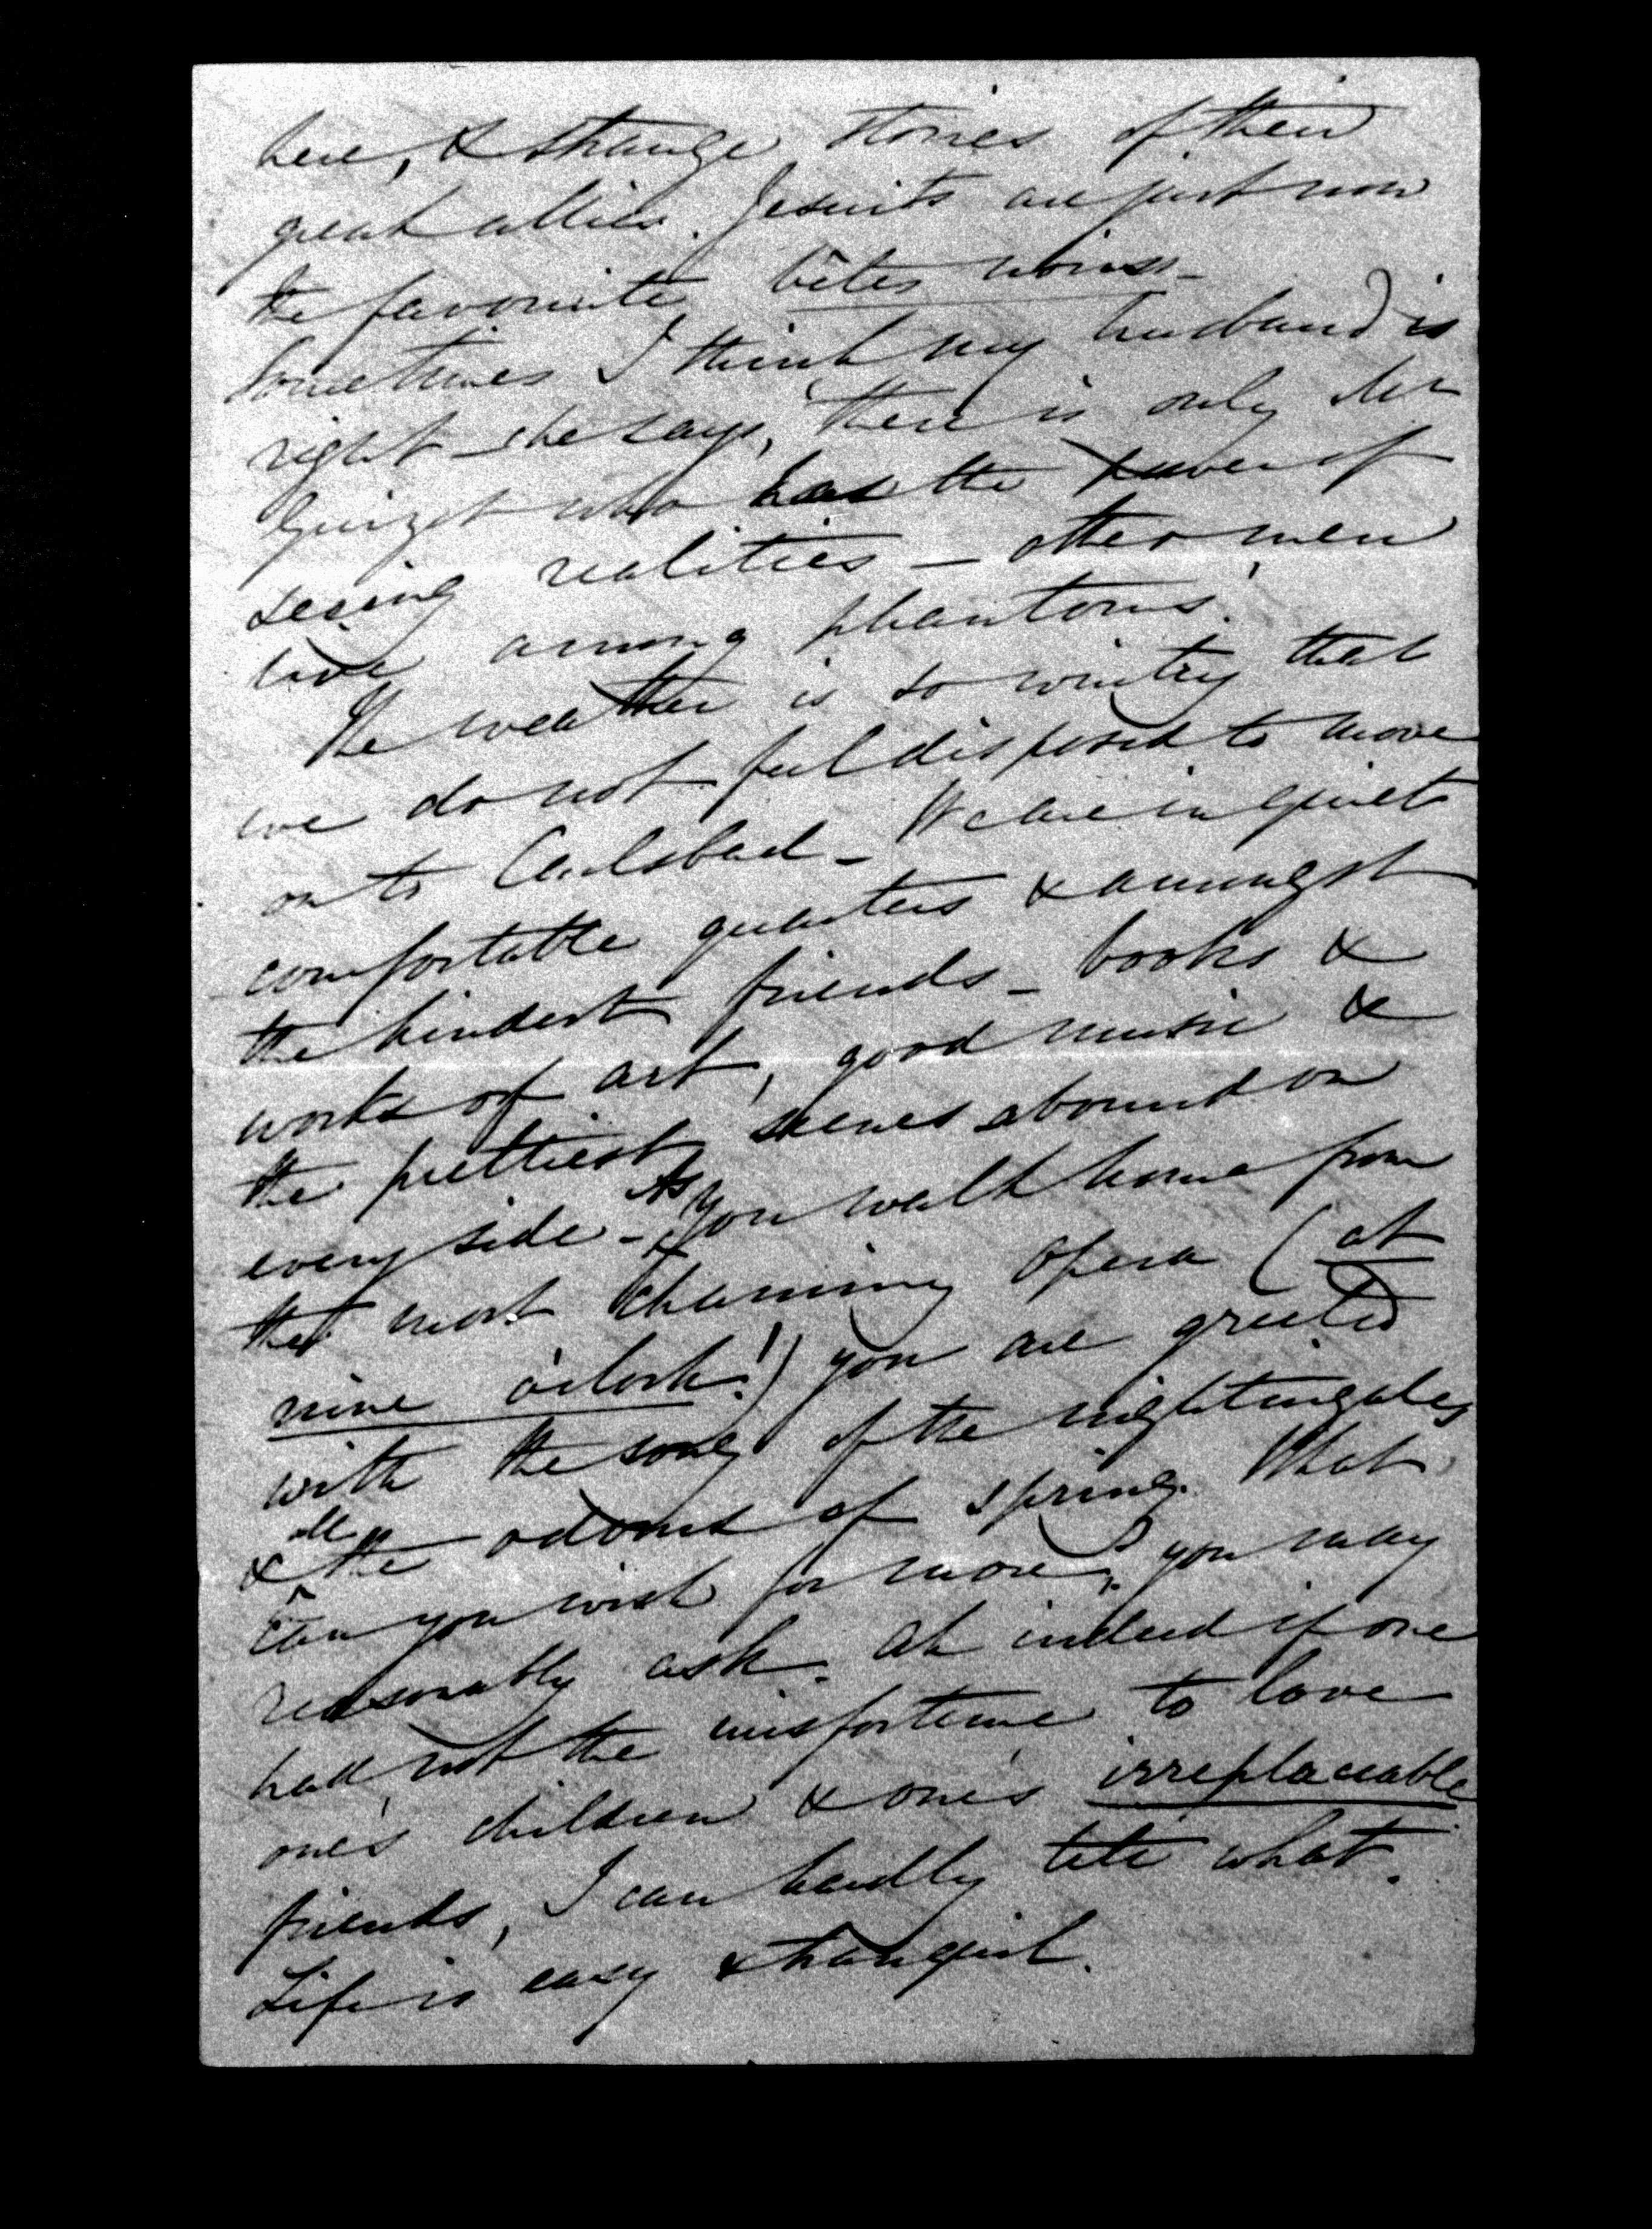 here, & strange stories of their
great allies. Jesuits are just now
the favourite bêtes noires -
Sometimes I think my husband is
right - he says, 'there is only Mr
Guizot who has the power of
seeing realities - other men
live among phantoms.'
The weather is so wintry that
we do not feel disposed to move
on to Carlsbad - We are in quiet
comfortable quarters & amongst
the kindest friends - books &
works of art, good music &
the prettiest scenes abound on
every side - As you walk home from
the most charming Opera (at
nine o'clock!) you are greeted
with the song of the nightingales
& all the odours of spring. What
can you wish for more? you may
reasonably ask. Ah indeed if one
had not the misfortune to love
one's children & one's irreplaceable
friends, I can hardly tell what.
Life is easy & tranquil.